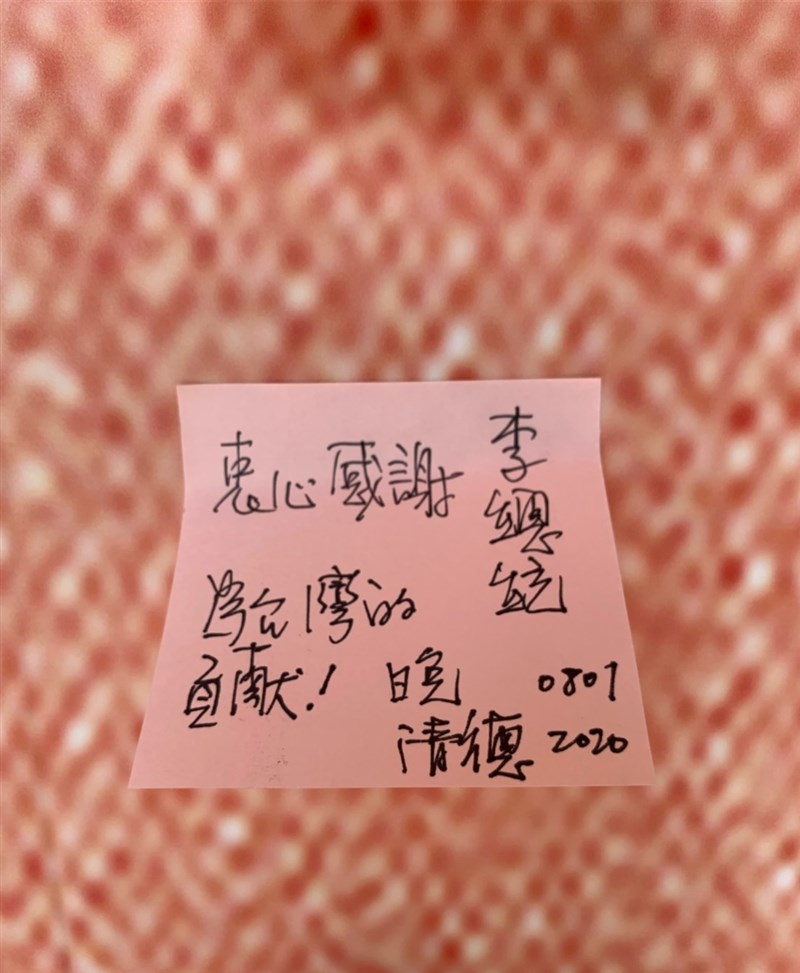 李總統
衷心感謝
為台灣的
貢献！
晚
清德
0801
2020